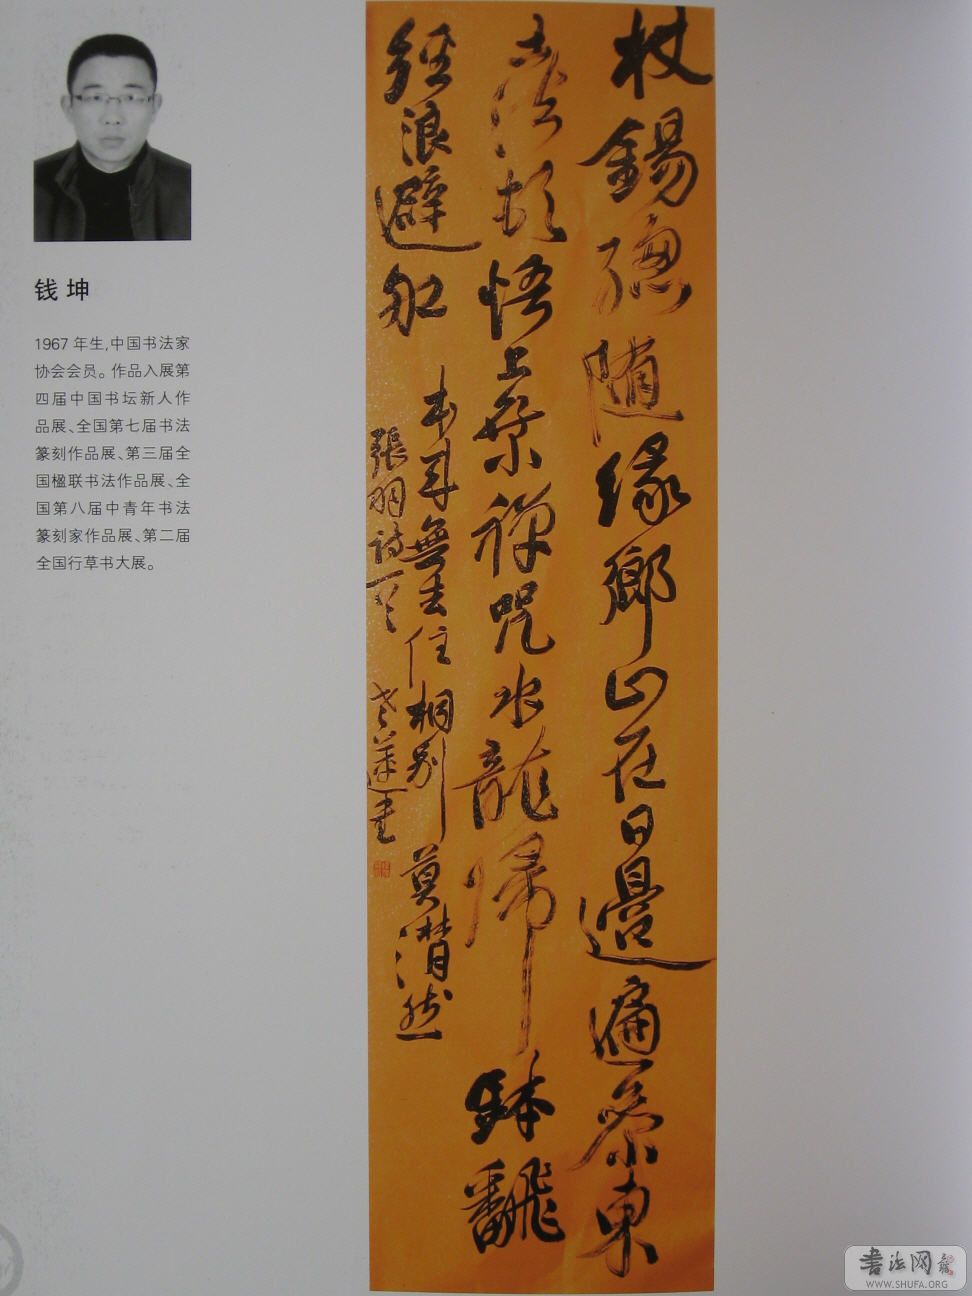 钱坤
1967 年生,中国书法家
协会会员。作品入展第
四届中国书坛新人作
品展、全国第七届书法
篆刻作品展、第三届全
国楹联书法作品展、全
国第八届中青年书法
篆刻家作品展、第二届
全国行草书大展。
杖錫總随緣鄉山在日邊遍参東
土法頓悟上乘禪咒水龍歸鉢飜
經浪避船
本来無去住相别莫潸然
張羽詩一
书法网
WWW.SHUFA.ORG